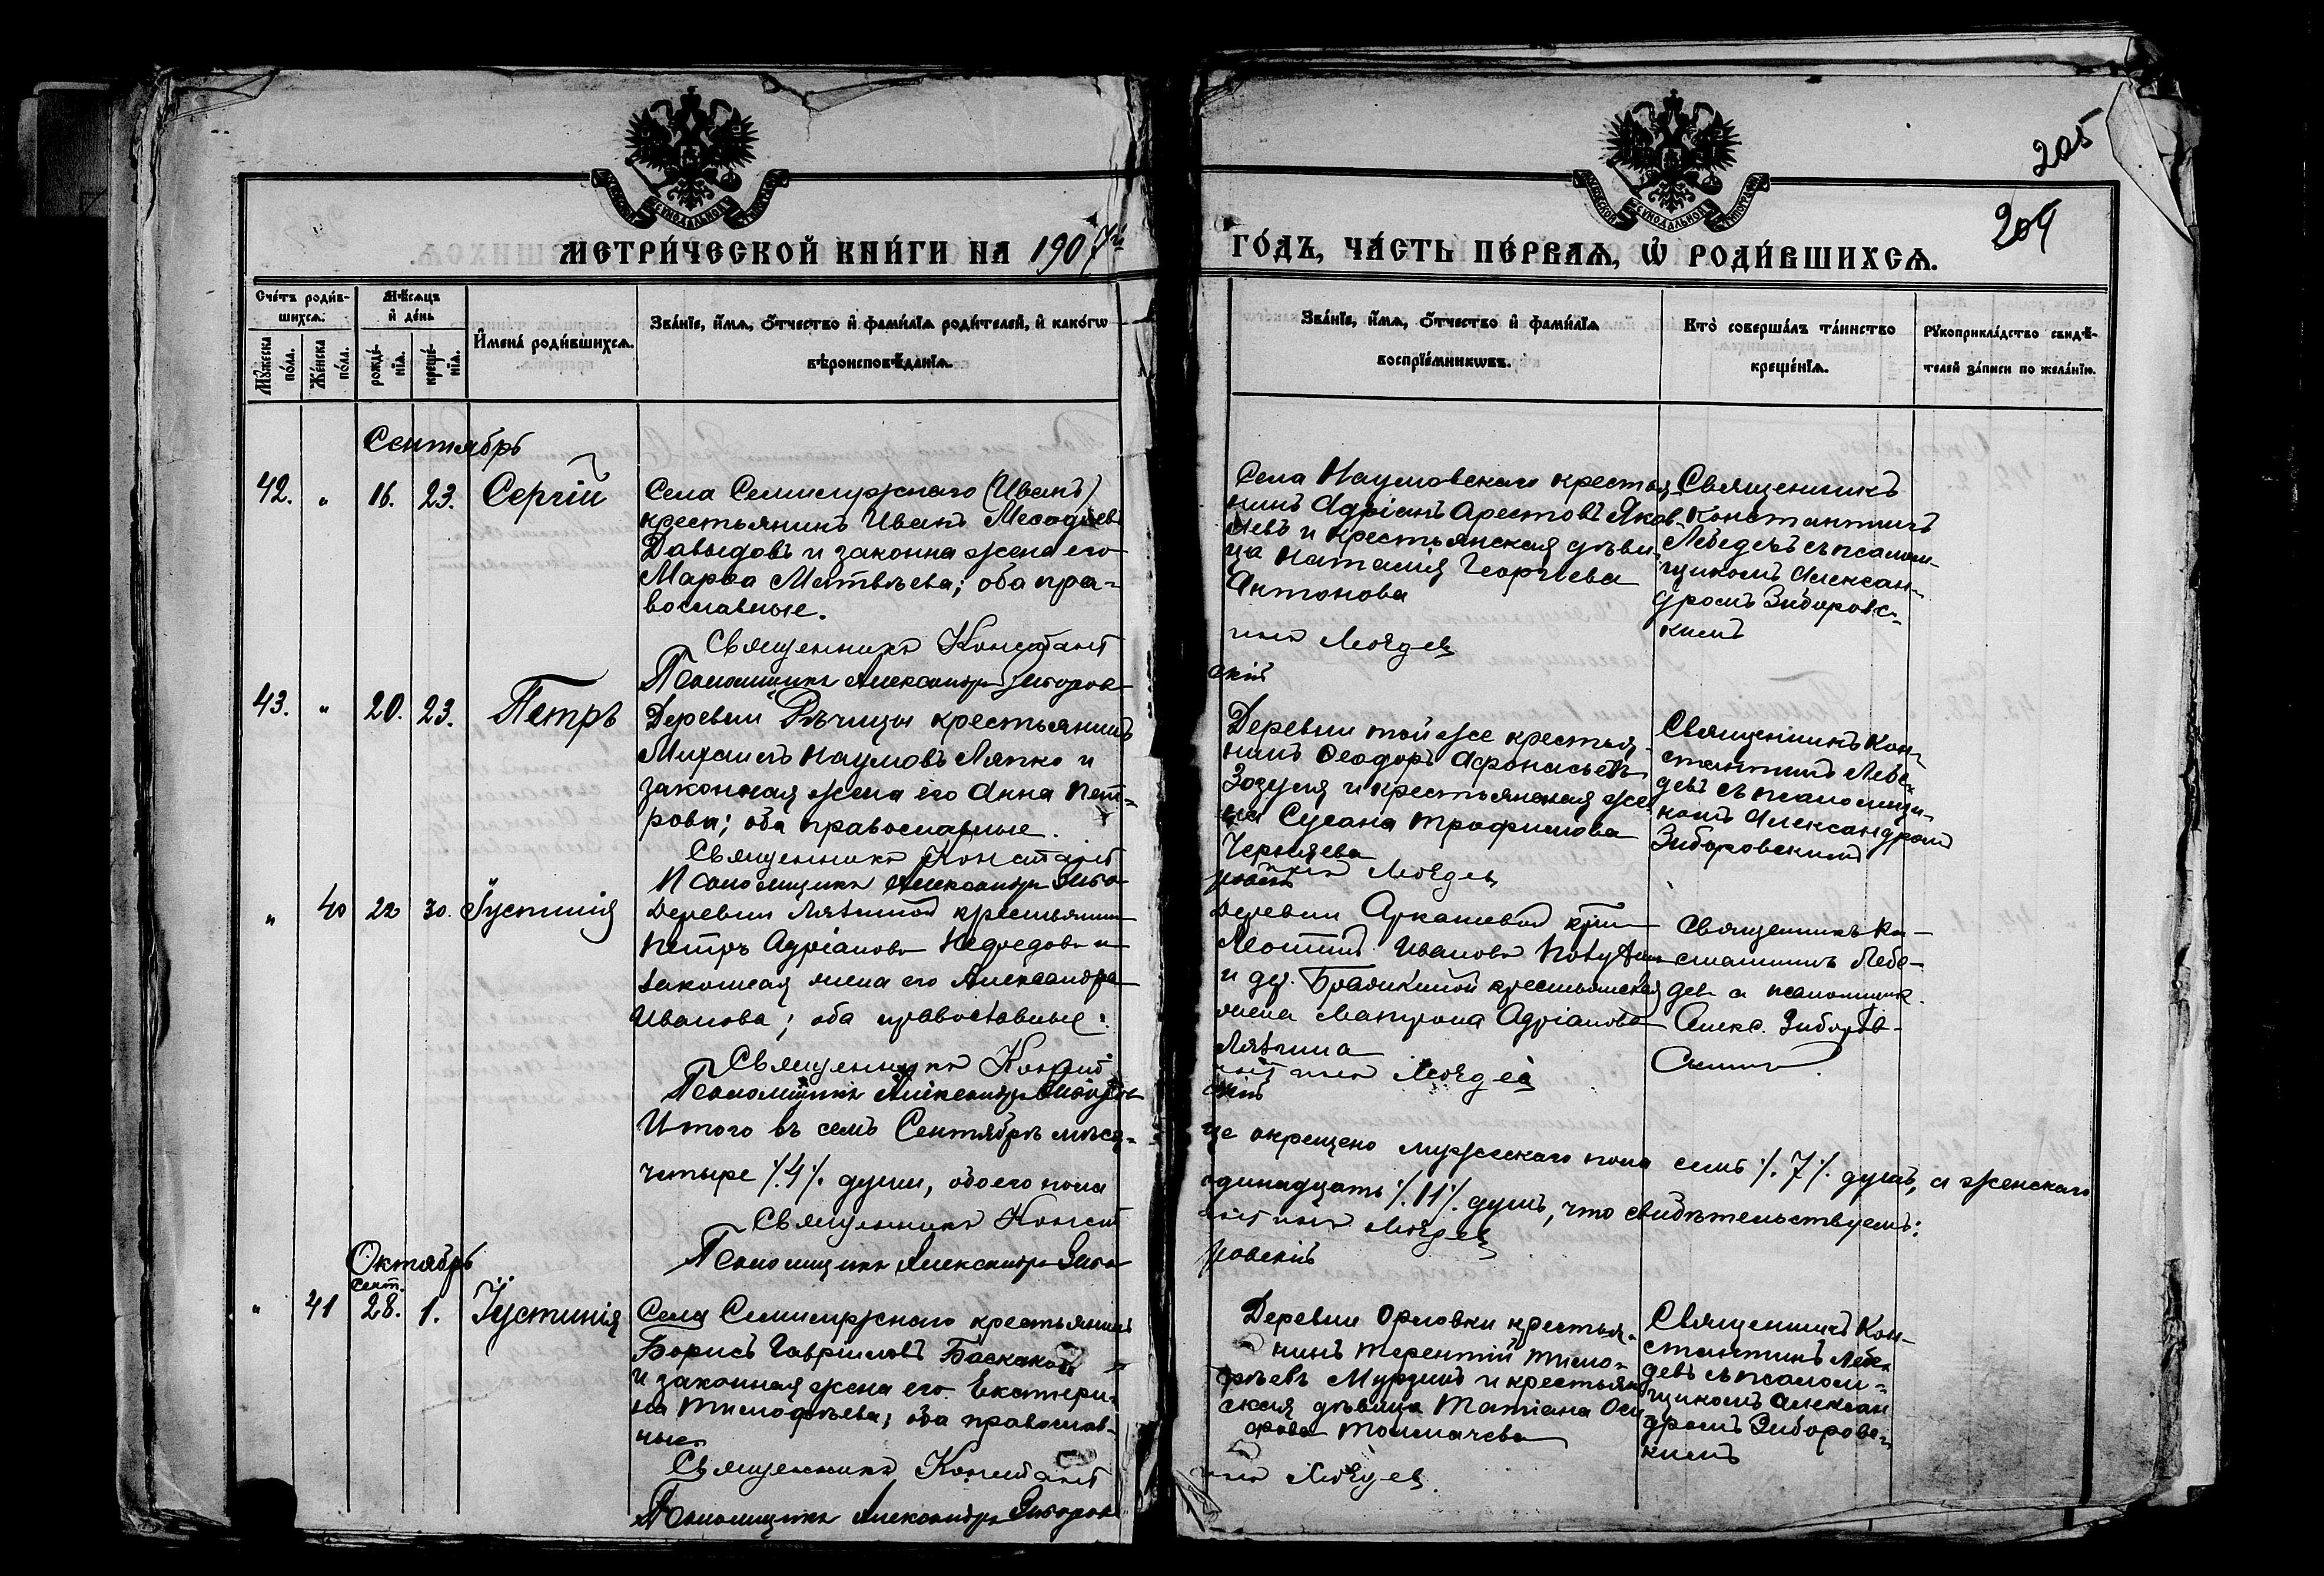 205
204
МОСКОВСКОЙ СѴНОДАЛЬНОЙ ТИПОГРАФІИ
МОСКОВСКОЙ СѴНОДАЛЬНОЙ ТИПОГРАФІИ
МЕТРИ́ЧЕСКОЙ КНИ́ГИ НА 1907й
ГО́ДЪ, ЧА́СТЬ ПЕ́РВАѦ, Ѡ҆ РОДИ́ВШИХСѦ.
Сче́тъ роди́в-
шихсѧ.
Мꙋ́жеска
по́ла.
Же́нска
по́ла.
Мѣ́сѧцъ
и҆ де́нь
рожде́-
нїѧ.
креще́-
нїѧ.
И҆мена̀ роди́вшихсѧ.
Зва́нїе, и҆́мѧ, ѻ҆́тчество и҆ фами́лїѧ роди́телей, и҆ како́гѡ
вѣроисповѣ́данїѧ.
Зва́нїе, и҆́мѧ, ѻ҆́тчество и҆ фами́лїѧ
воспрїе́мникѡвъ.
Кто̀ соверша́лъ та́инство
креще́нїѧ.
Рꙋкоприкла́дство свидѣ́-
телей за́писи по жела́нїю.
Сентябрь
42. " 16. 23. Сергій
Села Семисужснаго (Иванъ)
крестьянинъ Иванъ Меѳодіевъ
Давыдовъ и законна жена его
Марѳа Матвѣева; оба пра-
вославные.
Священникъ Констант
Псаломщикъ Александръ Зиборов
Села Наумовскаго крестья-
нинъ Адріанъ Арестовъ Яков-
левъ и крестьянская дѣви-
ца Наталія Георгіева
Антонова
инъ Лебедев
скій
Священникъ
Константинъ
Лебедевъ съ псалом-
щикомъ Алексан-
дромъ Зиборовс-
кимъ
43. " 20. 23. Петръ
Деревни Рѣчицы крестьянинъ
Михаилъ Наумовъ Ляпко и
законная жена его Анна Пет-
рова; оба православные.
Священникъ Констант
Псаломщикъ Александръ Зибо
Деревни той же крестья-
нинъ Ѳеодоръ Афонасьевъ
Зозуля и крестьянская же-
на Сусана Трофимова
Черняева
инъ Лебедев
ровскій
Священникъ Кон-
стантинъ Лебе-
девъ съ псаломщи-
комъ Александромъ
Зиборовскимъ
" 40 22 30. Іустинія
Деревни крестьянин
Петръ Адріановъ и
законная жена его Александра
Иванова; оба православные.
Священникъ Конст
Псаломщикъ Александръ Зиборов
Деревни
Иванова
и дер. крестьянская
жена Матрона Адріанова
инъ Лебедев
скій
Священникъ Ко-
стантинъ Лебе-
девъ с псаломщик.
Алекс. Зиборов-
скимъ.
Итого въ семъ Сентябрѣ мѣся-
це окрещено мужескаго пола семь ⁒ 7 ⁒ душъ, а женскаго
четыре ⁒ 4 ⁒ души, обоего пола
одинадцать ⁒ 11 ⁒ душъ, что свидѣтельствуемъ:
Священникъ Конст
инъ Лебедев
Псаломщикъ Александръ Зибо
ровскій
Октябрь
Сент.
" 41 28. 1. Іустинія
Села Семисужснаго крестьянинъ
Борисъ Гавриловъ Баскаковъ
и законная жена его Екатери-
на Тимофѣева; оба православ-
ные.
Священникъ Констант
Псаломщикъ Александръ Зиборов
Деревни Орловки крестья-
нинъ Терентій Тимо-
фѣевъ Мурзинъ и крестьян-
ская дѣвица Татіана Оси
Толмачева
инъ Лебедев.
Священникъ Кон-
стантинъ Лебе-
девъ съ псалом-
щикомъ Алексан
дромъ Зиборовс-
кимъ